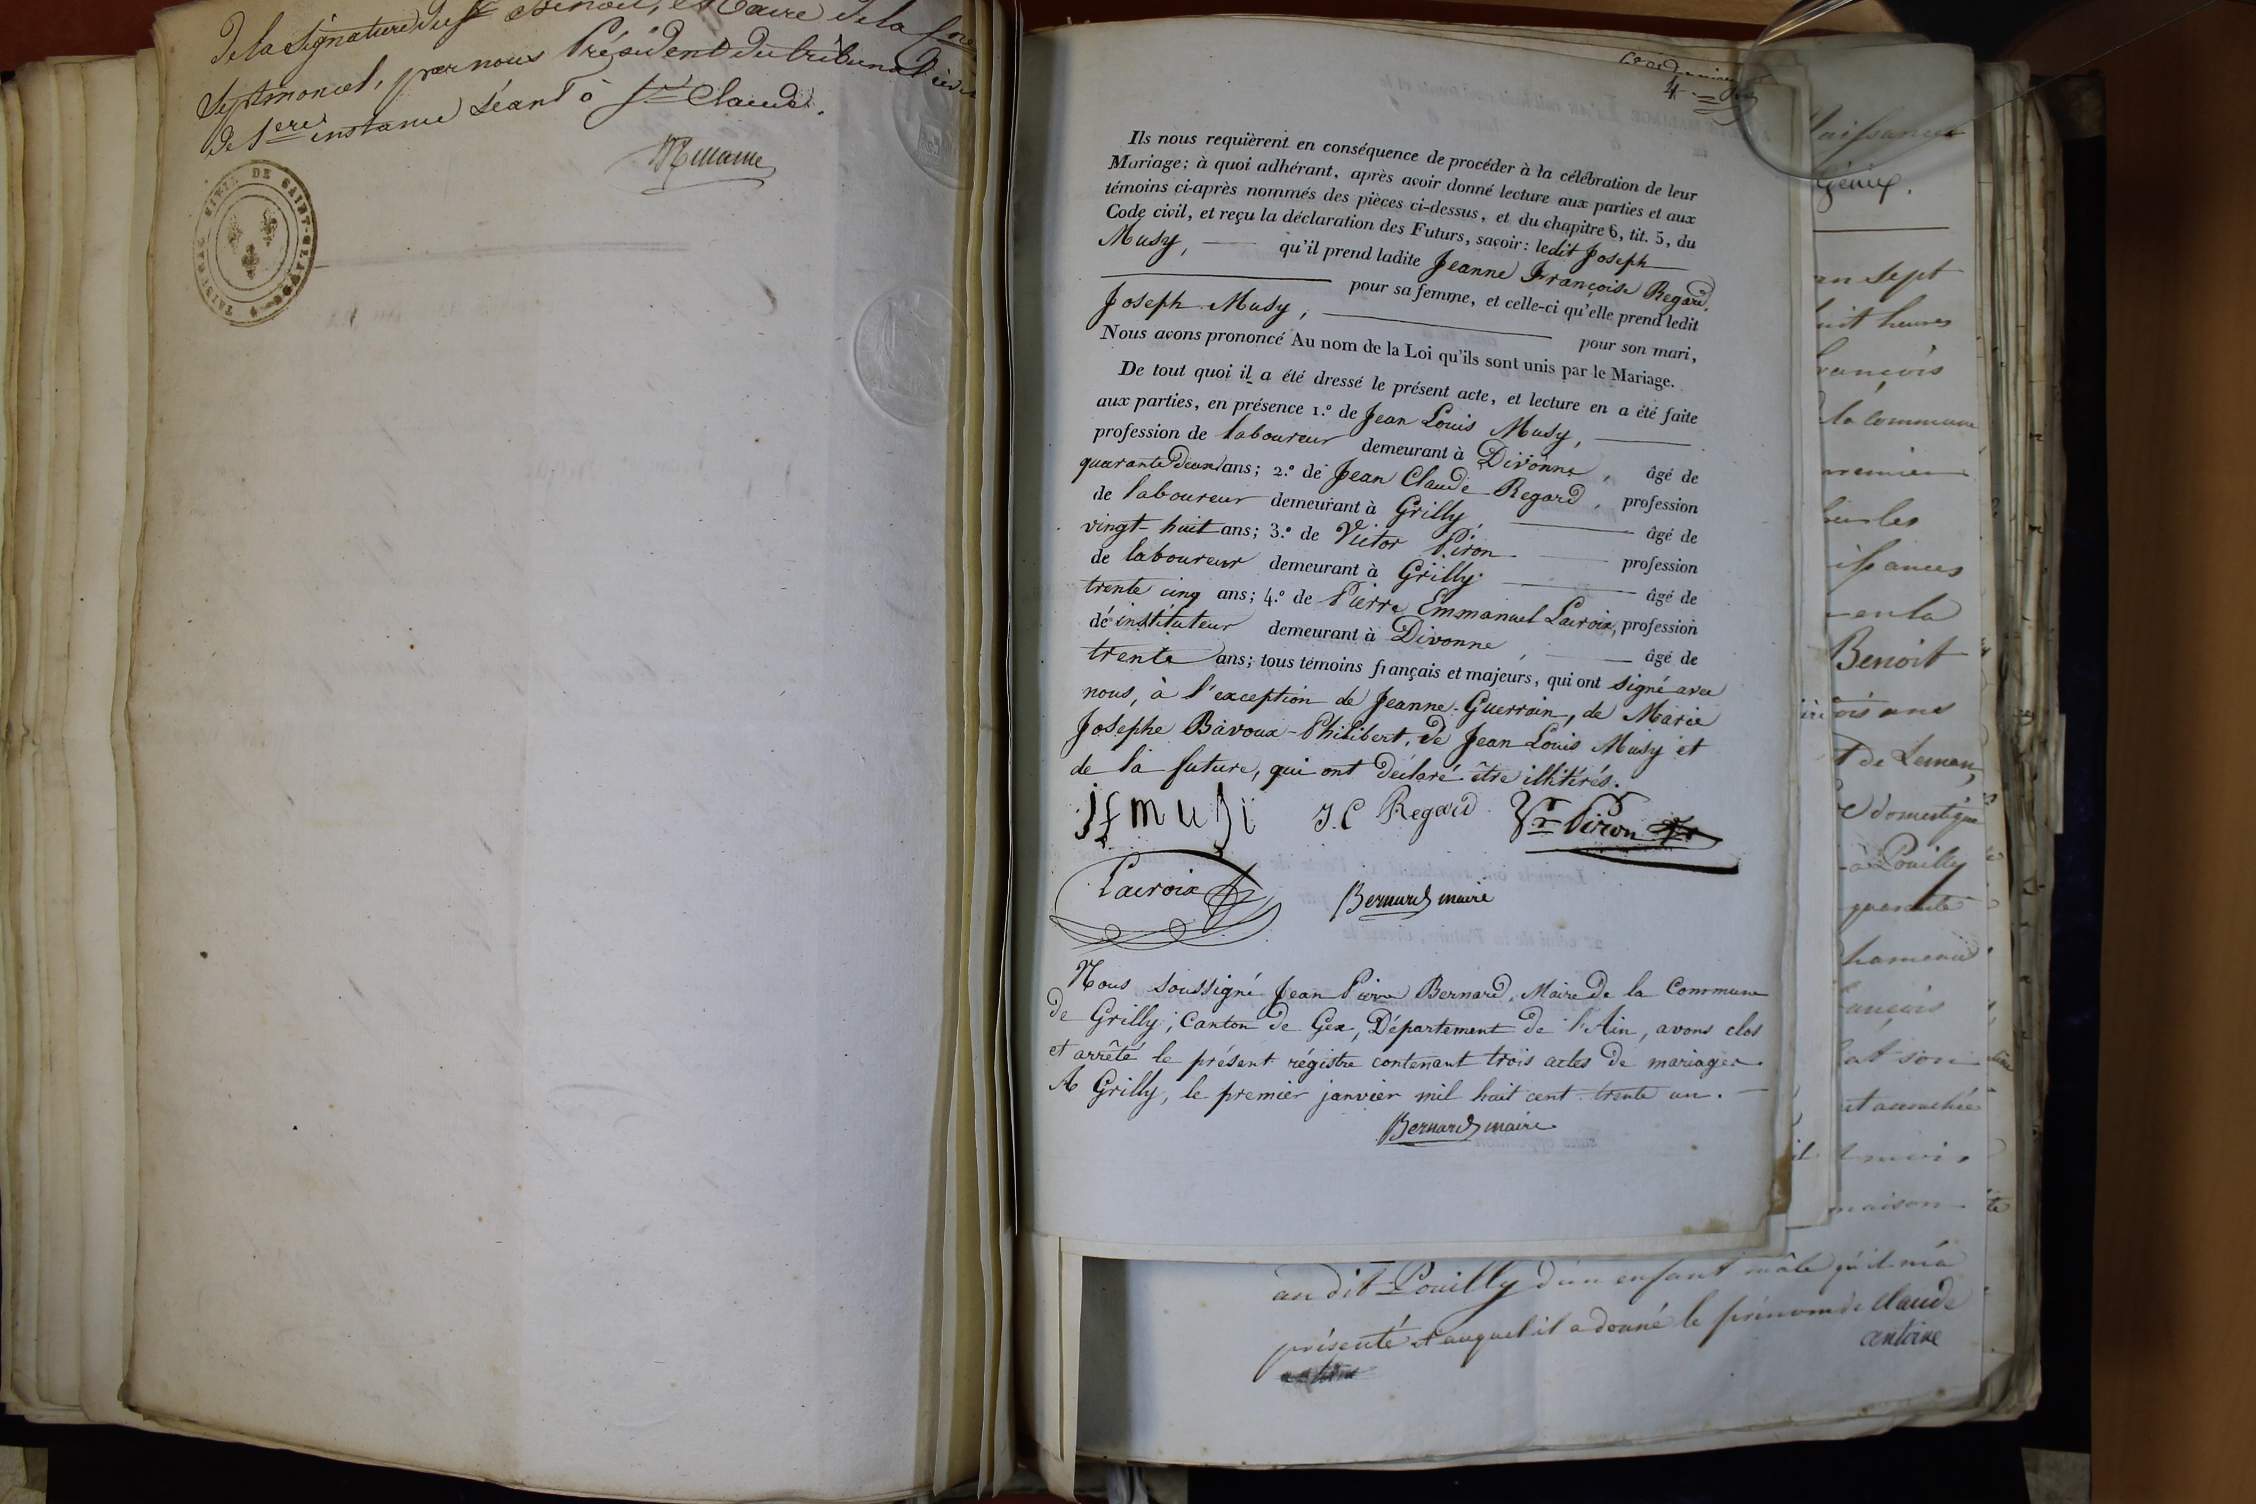 de la signature du Sr Benoit, Maire de la
Septmoncel, par nous Président du tribunal civil
de 1ere instance séant à St Claude.
CIVIL DE SAINT-CLAUDE
4
Ils nous requièrent en conséquence de procéder à la célébration de leur
Mariage; à quoi adhérant, après avoir donné lecture aux parties et aux
témoins ci-après nommés des pièces ci-dessus, et du chapitre 6, tit. 5, du
Code civil, et reçu la déclaration des Futurs, savoir: ledit Joseph
Musy, qu'il prend ladite Jeanne Françoise Regard,
pour sa femme, et celle-ci qu'elle prend ledit
Joseph Musy, pour son mari,
Nous avons prononcé Au nom de la Loi qu'ils sont unis par le Mariage.
De tout quoi il a été dressé le présent acte, et lecture en a été faite
aux parties, en présence 1.º de Jean Louis Musy,
profession de laboureur demeurant à Divonne, âgé de
quarante deux ans; 2.º de Jean Claude Regard, profession
de laboureur demeurant à Grilly, âgé de
vingt-huit ans; 3.º de Victor Piron profession
de laboureur demeurant à Grilly âgé de
trente cinq ans; 4.º de Pierre Emmanuel Lacroix, profession
de instituteur demeurant à Divonne, âgé de
trente ans; tous témoins français et majeurs, qui ont signé avec
nous, à l'exception de Jeanne Guerrain, de Marie
Josephe Bavoux-Philibert, de Jean Louis Musy et
de la future, qui ont déclaré être illitérés.
jf musi J. C Regard Vr Piron
Lacroix Bernard maire
Nous soussigné Jean Pierre Bernard, Maire de la Commune
de Grilly, Canton de Gex, Département de l'Ain, avons clos
et arrêté le présent régistre contenant trois actes de mariages.
A Grilly, le premier janvier mil huit cent trente un.
Bernard maire
Naissance
an Sept
huit heures
françois
la commune
premier
en la
Benoit
ois ans
t de Leman,
domestique
à Pouilly
quarante
hameau
françois
at son
et accouchée
maison
au dit Pouilly d'un enfant mâle qu'il m'a
présenté et auquel il a donné le prénom de Claude
antoine